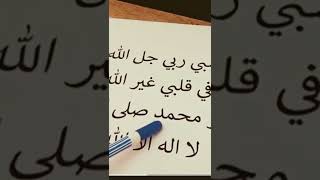 بي ربي جل الله
في قلبي غير الله
محمد صلى
لا اله الا الله